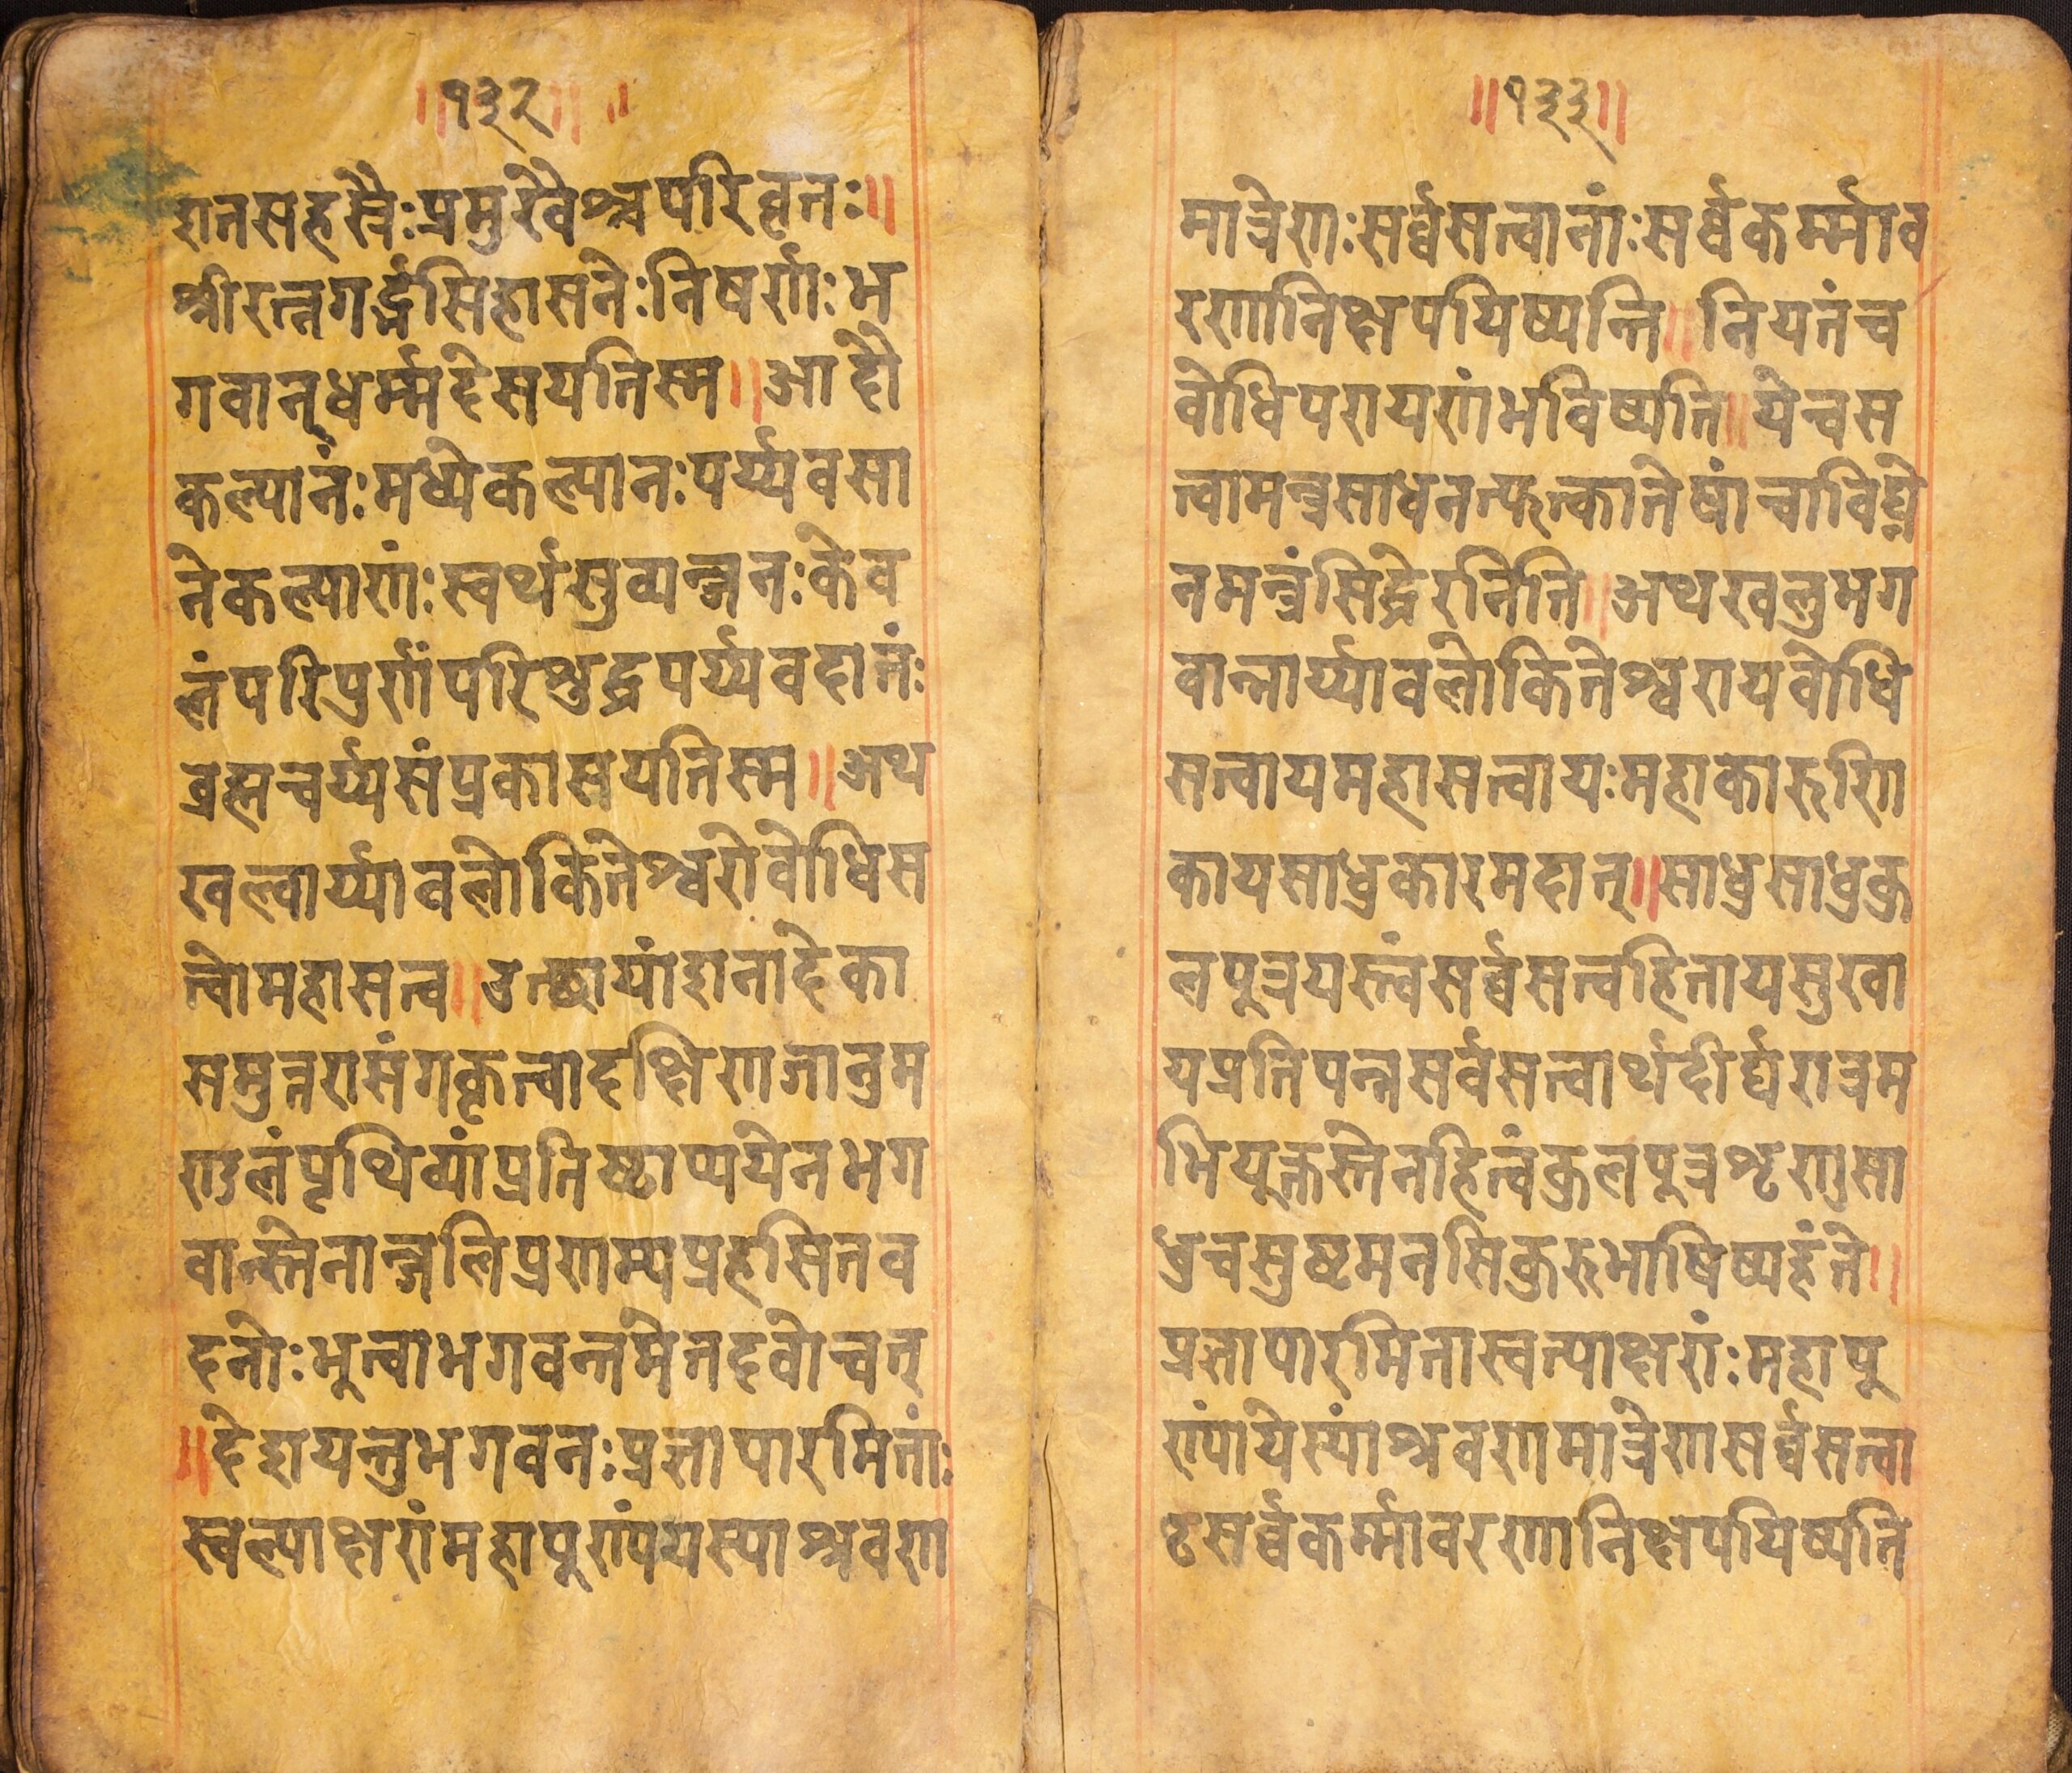 ॥१३२॥ ॥
शतसहस्रैःप्रमुखैश्चपरिवृतः॥
श्रीरत्नगर्द्भसिंहासनेःनिषर्णाःभ
गवान्धर्म्मदेसयतिस्म॥आदौ
कल्यानंःमध्येकल्यानःपर्य्यवसा
नेकल्याणंःस्वर्थसुव्यन्जनःकेव
लंपरिपुर्णांपरिशुद्धपर्य्यवदानंः
व्रह्मचर्य्यसंप्रकासयतिस्म॥अथ
खल्वार्य्यावलोकितेश्वरोवोधिस
त्वोमहासत्व॥उत्छायांशनादेका
समुत्तरासंगकृत्वादक्षिणजानुम
ण्डलंपृथिव्यांप्रतिष्ठाप्ययेनभग
वान्स्तेनान्जलिप्रणम्यप्रहसितव
दनोःभुत्वाभगवन्तमेतदवोचत्
॥देशयन्तुभगवनःप्रज्ञापारमितांः
स्वल्पाक्षरांमहापुण्यंयस्याश्रवण
॥१३३॥
मात्रेणःसर्व्वसत्वानांःसर्व्वकर्म्माव
रणानिक्षपयिष्यन्ति॥नियतंच
वोधिपरायणंभविष्यति॥येचस
त्वामन्त्रसाधनत्फत्कातेषांचाविघ्ने
नमन्त्रंसिद्धेरनिति॥अथखलुभग
वान्नार्य्यावलोकितेश्वरायवोधि
सत्वायमहासत्वायःमहाकारुणि
कायसाधुकारमदात्॥साधुसाधुकु
लपुत्रयस्त्वंसर्व्वसत्वहितायसुखा
यप्रतिपन्नसर्वसत्वार्थंदीर्घरात्रम
भियुक्तस्तेनहित्वंकुलपुत्रशृणुसा
धुचसुष्टमनसिकुरुभाषिष्यहंते॥
प्रज्ञापारमितास्वल्पाक्षरांःमहापु
ण्यांयेस्यांश्रवणमात्रेणसर्व्वसत्वा
ःसर्व्वकर्म्मावरणानिक्षपयिष्यति